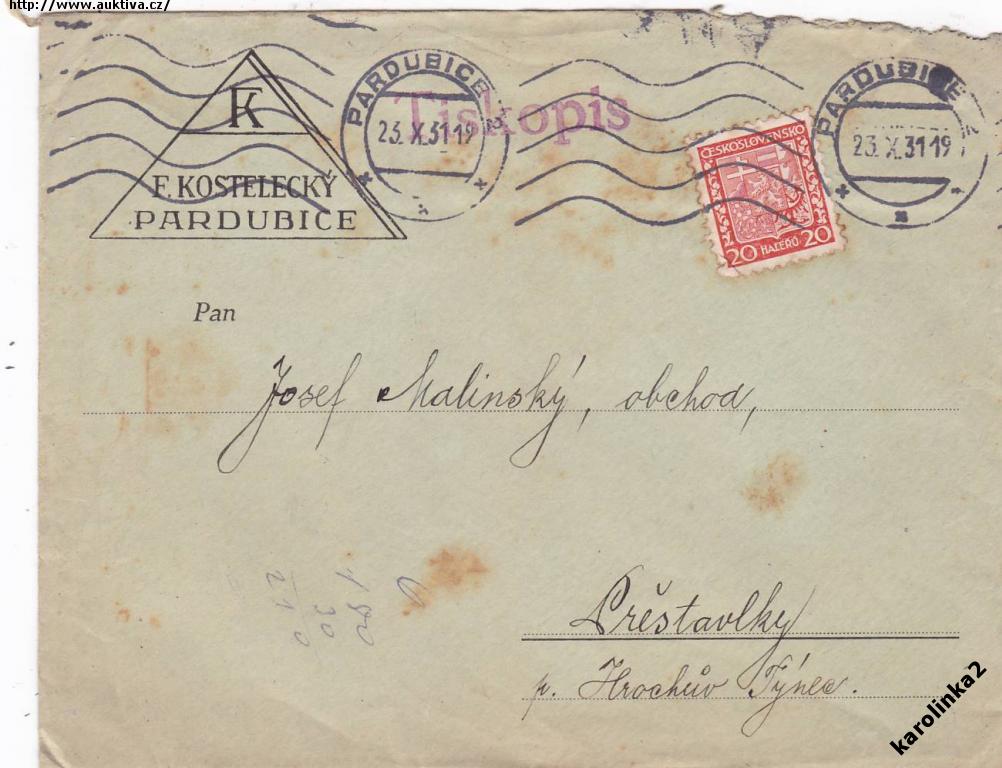 http://www.auktiva.cz/
FK
F. KOSTELECKÝ
PARDUBICE
PARDUBICE 2
23.X.31 19
Tiskopis
ČESKOSLOVENSKO
20 HALÉŘŮ 20
PARDUBICE 2
23.X.31 19
Pan
Josef Malinský, obchod,
Přestavlky
p. Hrochův Týnec.
1 80
30
2 10
karolinka2